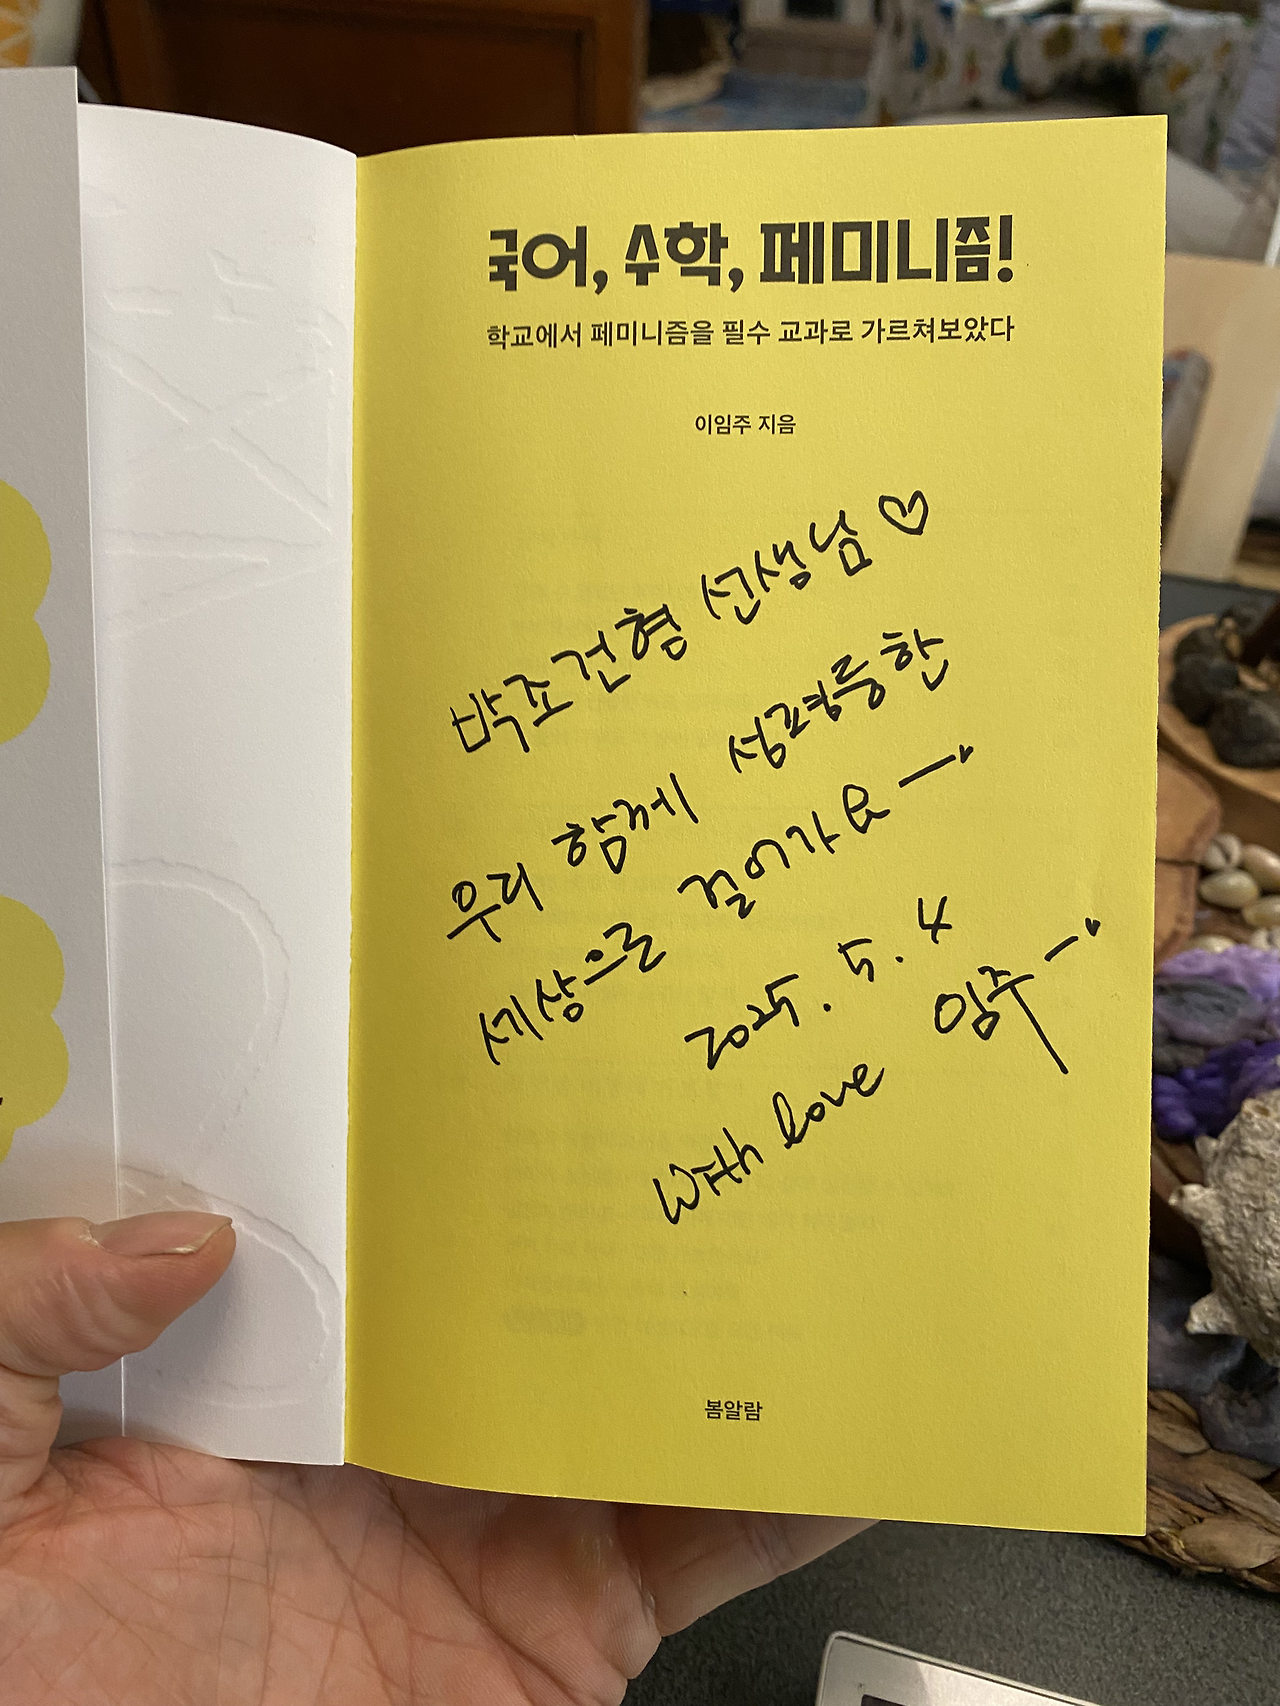 국어, 수학, 페미니즘!
학교에서 페미니즘을 필수 교과로 가르쳐보았다
이임주 지음
박조건형 선생님 ♡
우리 함께 성평등한
세상으로 걸어가요
2025. 5. 4
임주
with love
봄알람